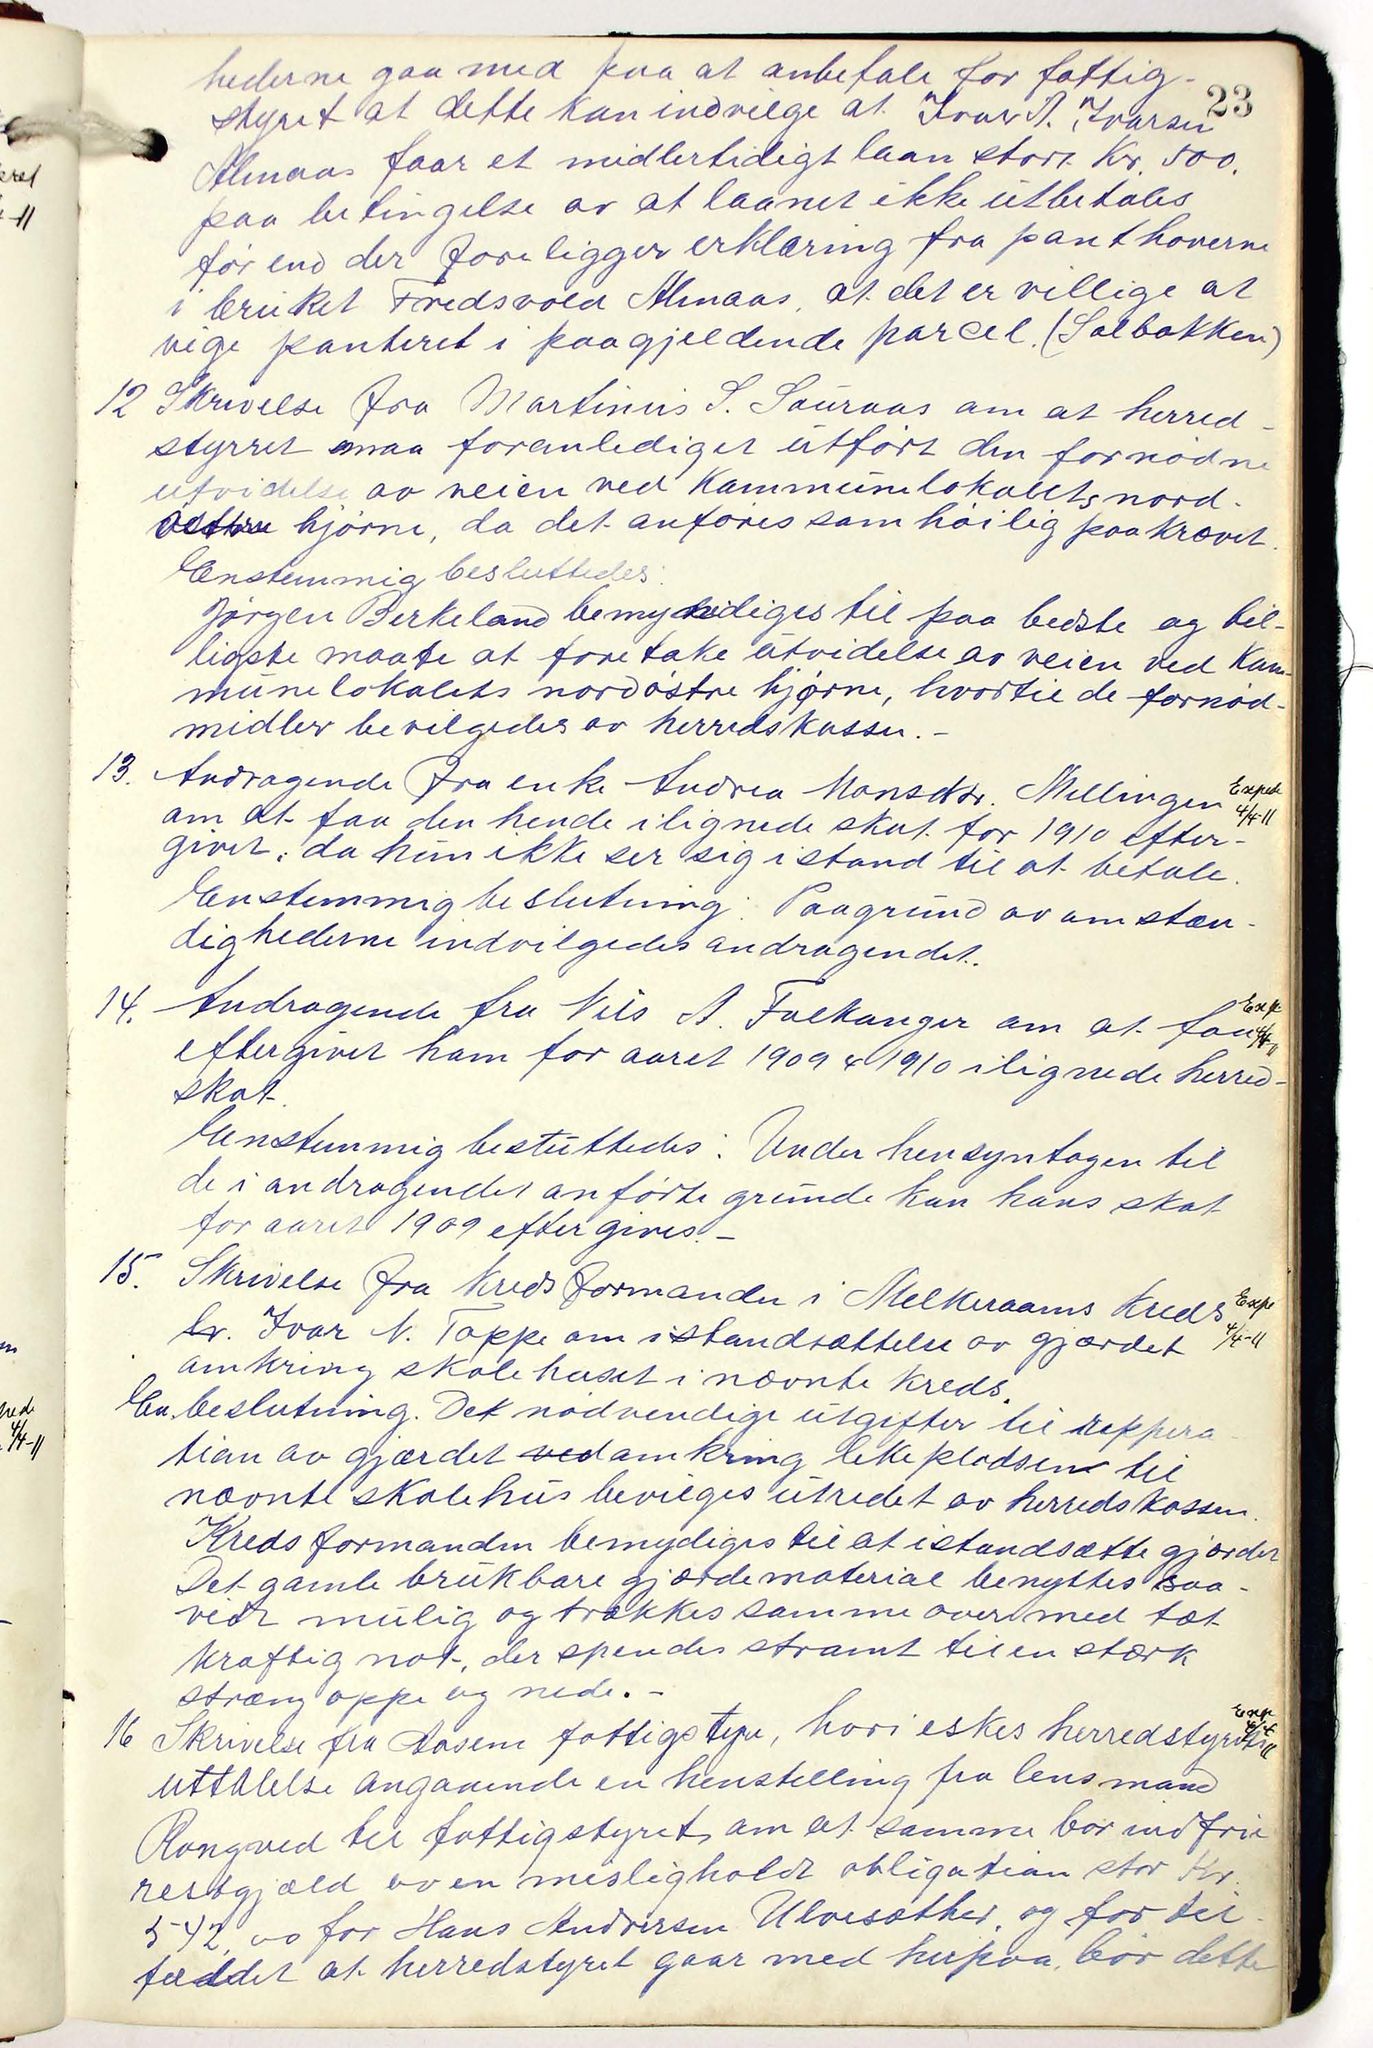 23
hederne gaa med paa at anbefale for fattig-
styret at dette kan indvilge at Ivar A. Ivarsen
Almaas faar et midlertidigt laan stort Kr. 500.
paa betingelse av at laanet ikke utbetales
før end der foreligger erklæring fra panthaverne
i bruket Fredsvold Almaas, at det er villige at
vige panteret i paagjeldende parcel. (Solbakken)
12 Skrivelse fra Martinus S. Sauraas om at herred-
styrret maa foranlediget utført den fornødne
utvidelse av veien ved Kommunelokalets nord-
østre hjørne, da det anføres som høilig paakrævet.
Enstemmig besluttedes:
Jørgen Birkeland bemyndiges til paa bedste og bil-
ligste maate at foretake utvidelse av veien ved Kom-
munelokalets nordøstre hjørne, hvortil de fornød-
midler bevilgedes av herredskassen.-
13. Andragende fra enke Andrea Monsdtr. Mellingen
Exped
4/4-11
om at faa den hende ilignede skat for 1910 efter-
givet, da hun ikke ser sig istand til at betale.
Enstemmig beslutning: Paagrund av omstæn-
dighederne indvilgedes andragendet.
14. Andragende fra Nils A. Falkanger om at faa
Exp
4/4-11
eftergivet ham for aaret 1909 & 1910 ilignede herred-
skat.
Enstemmig besluttedes: Under hensyntagen til
de i andragendet anførte grunde kan hans skat
for aaret 1909 eftergives.-
15. Skrivelse fra kredsformanden i Melkeraaens kreds
Expe
4/4-11
hr. Ivar N. Toppe om istandsættelse av gjærdet
omkring skolehuset i nævnte kreds.
En. beslutning. Det nødvendige utgifter til reppera-
tion av gjærdet ved omkring lekepladsen til
nævnte skolehus bevilges utredet av herredskassen.
Kredsformanden bemydiges til at istandsætte gjærdet
Det gamle brukbare gjærdematerial benyttes saa-
vidt mulig og trækkes samme over med tæt
kraftig not, der spendes stramt til en stærk
stræng oppe og nede.-
16 Skrivelse fra Aasene fattigstyre, hvori eskes herredstyrets
Exp
4/4-11
uttalelse angaaende en henstilling fra lensmand
Rongved til fattigstyret, om at samme bør indfrie
restgjæld av en misligholdt obligation stor Kr.
542,00 for Hans Andersen Ulvesæther, og for til-
fældet at herredstyret gaar med herpaa, bør dette